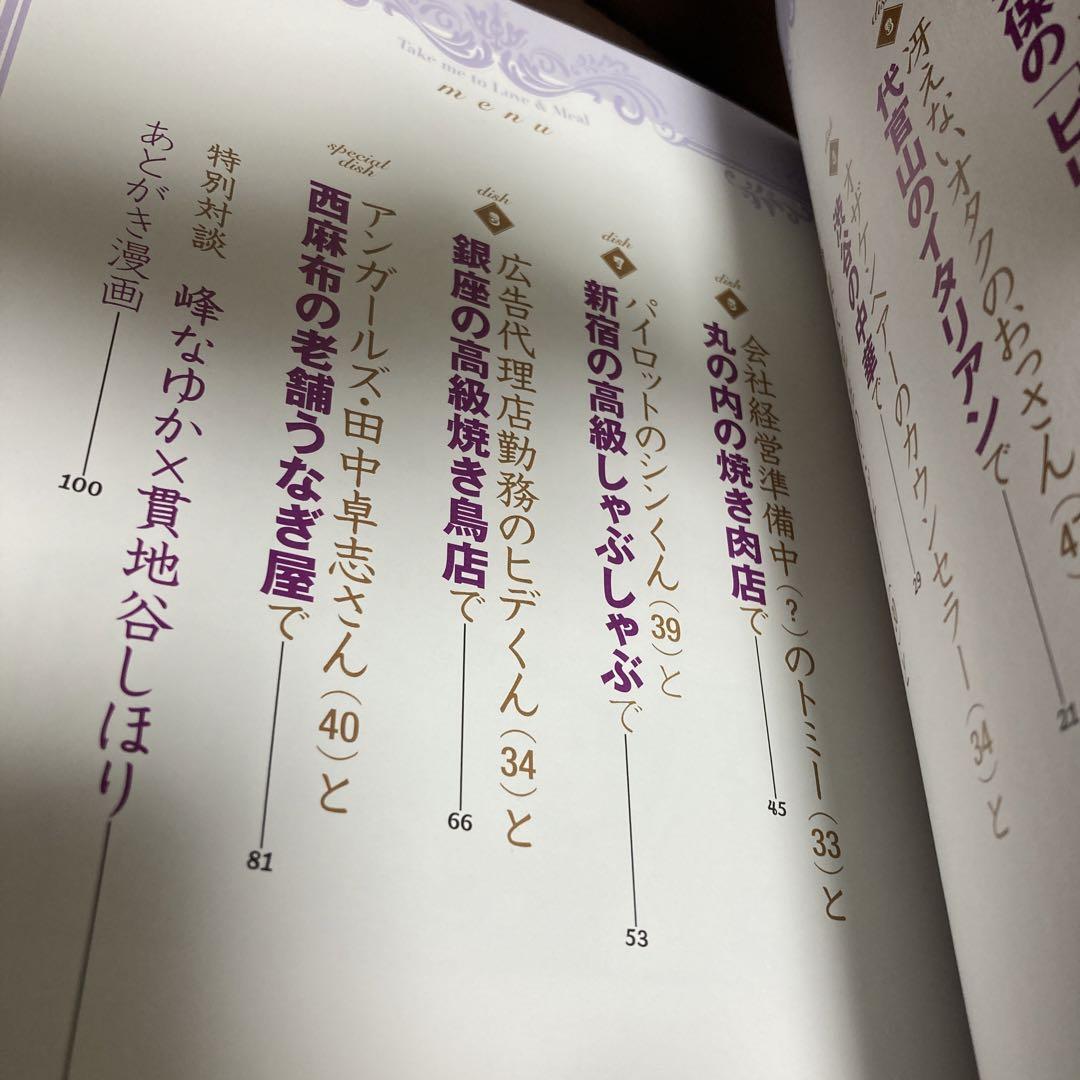 Take me to Love & Meal
menu
dish
冴えない、オタクの、おっさん(4
代官山のイタリアンで
21
オザケンヘアーのカウンセラー(34)と
渋谷の中華で
29
dish
会社経営準備中(?)のトミー(33)と
丸の内の焼き肉店で
45
dish 7
パイロットのシンくん(39)と
新宿の高級しゃぶしゃぶで
53
dish
広告代理店勤務のヒデくん(34)と
銀座の高級焼き鳥店で
66
special dish
アンガールズ・田中卓志さん(40)と
西麻布の老舗うなぎ屋で
81
特別対談 峰なゆか×貫地谷しほり
あとがき漫画
100